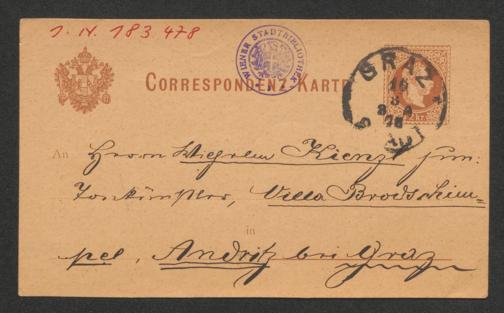 1. IV. 183 478
WIENER STADTBIBLIOTHEK
CORRESPONDENZ-KARTE
GRAZ
2 KR.
An Herrn Wilhelm Kienzl jun:
Tonkünstler, Villa Brodschim=
in
pel, Andritz bei Graz